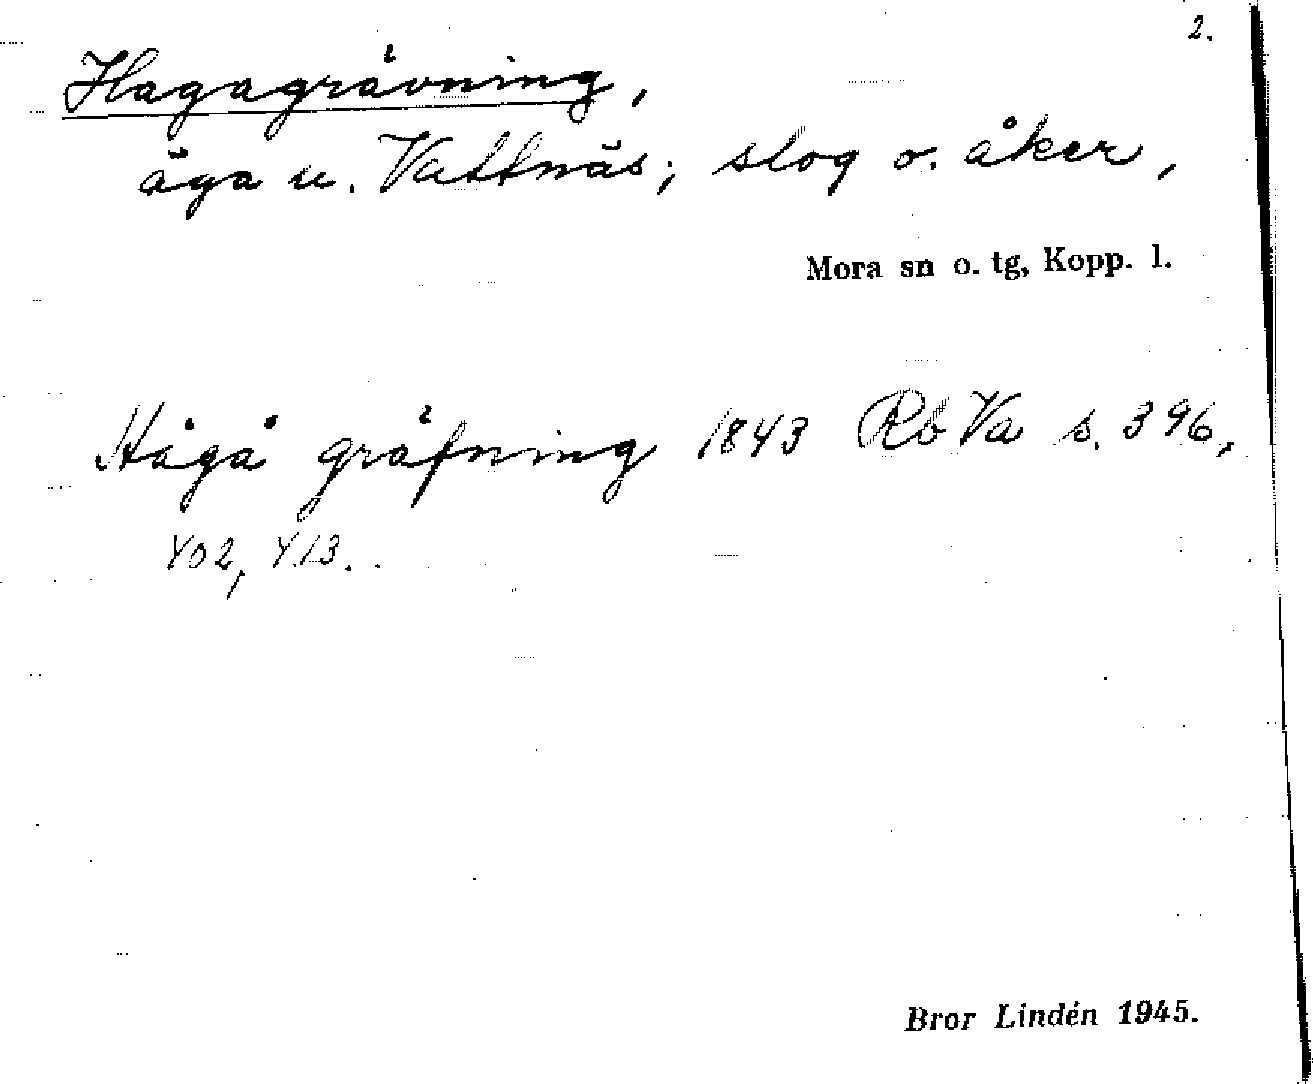 2.
Hagagrävning,
äga u. Vattnäs; slog o. åker,
Mora sn o. tg, Kopp. l.
Hågå gräfning 1843 RöVa s. 396,
402, 413.
Bror Lindén 1945.